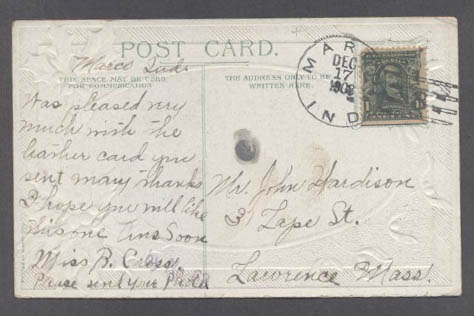 POST CARD.
Marco Ind.
THIS SPACE MAY BE USED
FOR COMMUNICATION
THE ADDRESS ONLY TO BE
WRITTEN HERE.
MAR
DEC
17
1908
IND
Was pleased very
much with the
leather card you
sent many thanks
I hope you will like
this one Ans Soon
Miss B.
Please send your Photo
Mr. John Hardison
3 Tape St.
Lawrence Mass.